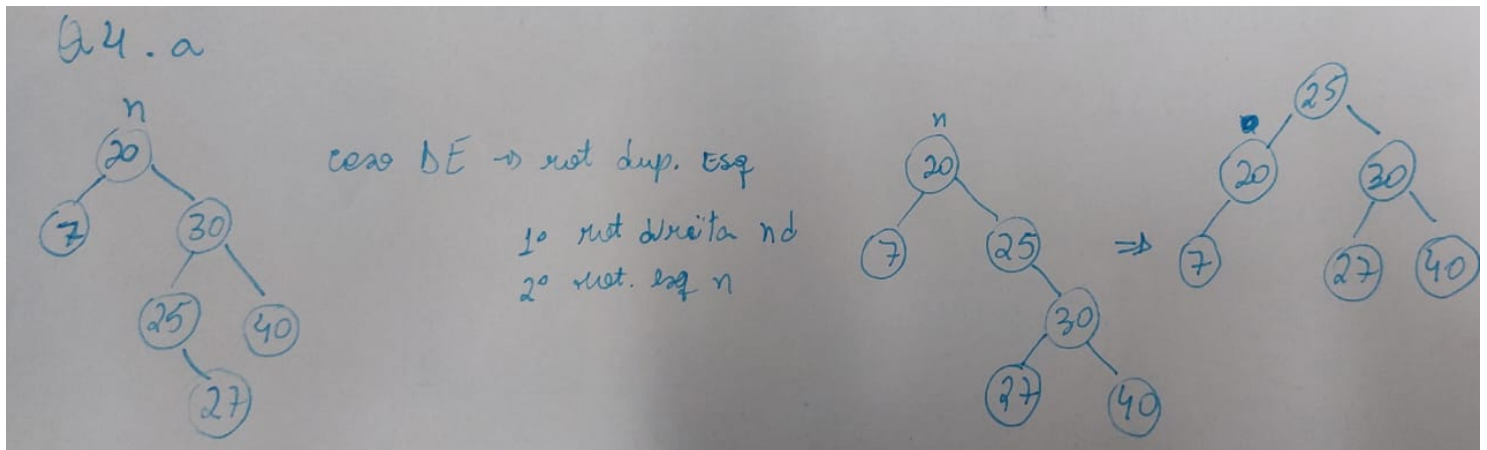 Q4. a
n
20
7
30
25
40
27
caso DE → rot dup. Esq
1º rot direita nd
2º rot. esq n
n
20
7
25
30
27
40
⇒
25
20
30
7
27
40